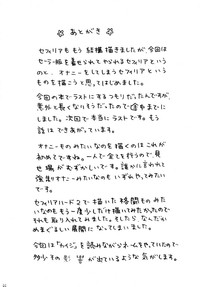 ☆ あとがき ☆
セフィリアももう結構描きましたが、今回は
セーラー服を着せられてやられるセフィリアという
のと、オナニーをしてしまうセフィリアという
ものを描こうと思ってはじめました。
今回の本でラストにするつもりだったんですが、
意外と長くなりそうだったので途中までに
しました。次回で本当にラストです。もう
話はでき上がっています。
オナニーものみたいなのを描くのはこれが
初めてですね。一人で全てを行うので、見
せ場がむずかしいです。誰かに言われて
強制オナニーみたいなのも いずれやってみた
いです。
セフィリアハード2で描いた格闘ものみ
たいなのをもう一度少しだけ描いてみたかったので
それも取り入れてみました。そしたら、なんだかい
めまぐるしい展開になってしまいました。
今回は「カイジ」を読みながらネームをやっていたので
妙にその が出ているような気がします。